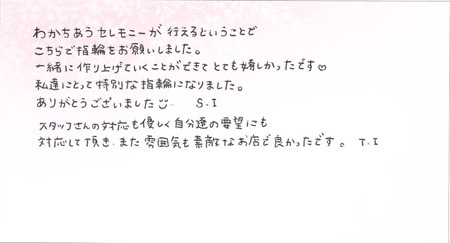 わかちあうセレモニーが行えるということで
こちらで指輪をお願いしました。
一緒に作り上げていくことができてとても嬉しかったです♡
私達にとって特別な指輪になりました。
ありがとうございました S.I
スタッフさんの対応も優しく自分達の要望にも
対応して頂き、また雰囲気も素敵なお店で良かったです。 T.I